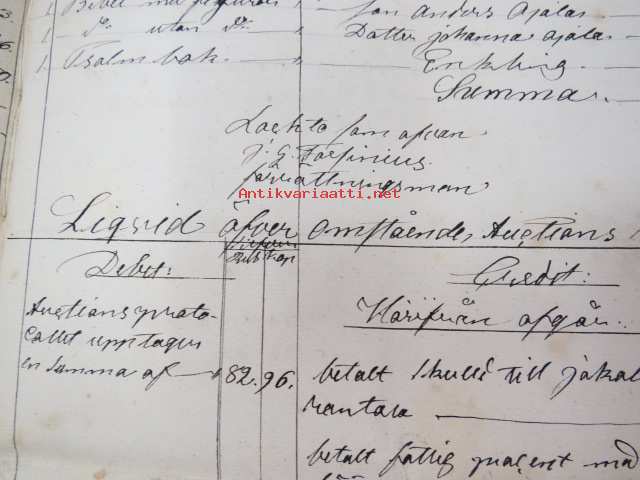 1 Bibel med figurer 1 Son Anders Ojala
1 Do utan Do 1 Dotter Johanna Ojala
1 Psalmbok 1 Enkling
Summa
som ofvan
J. G. Forsinius
förrättningsman
Antikvariaatti.net
Liqvid öfver omstående Auctions
Debet: Credit:
Härifrån afgår
Auctionsproto-
collet upptager
en summa af 82. 96.
betalt skuld till
rantala
betalt fattig procent med